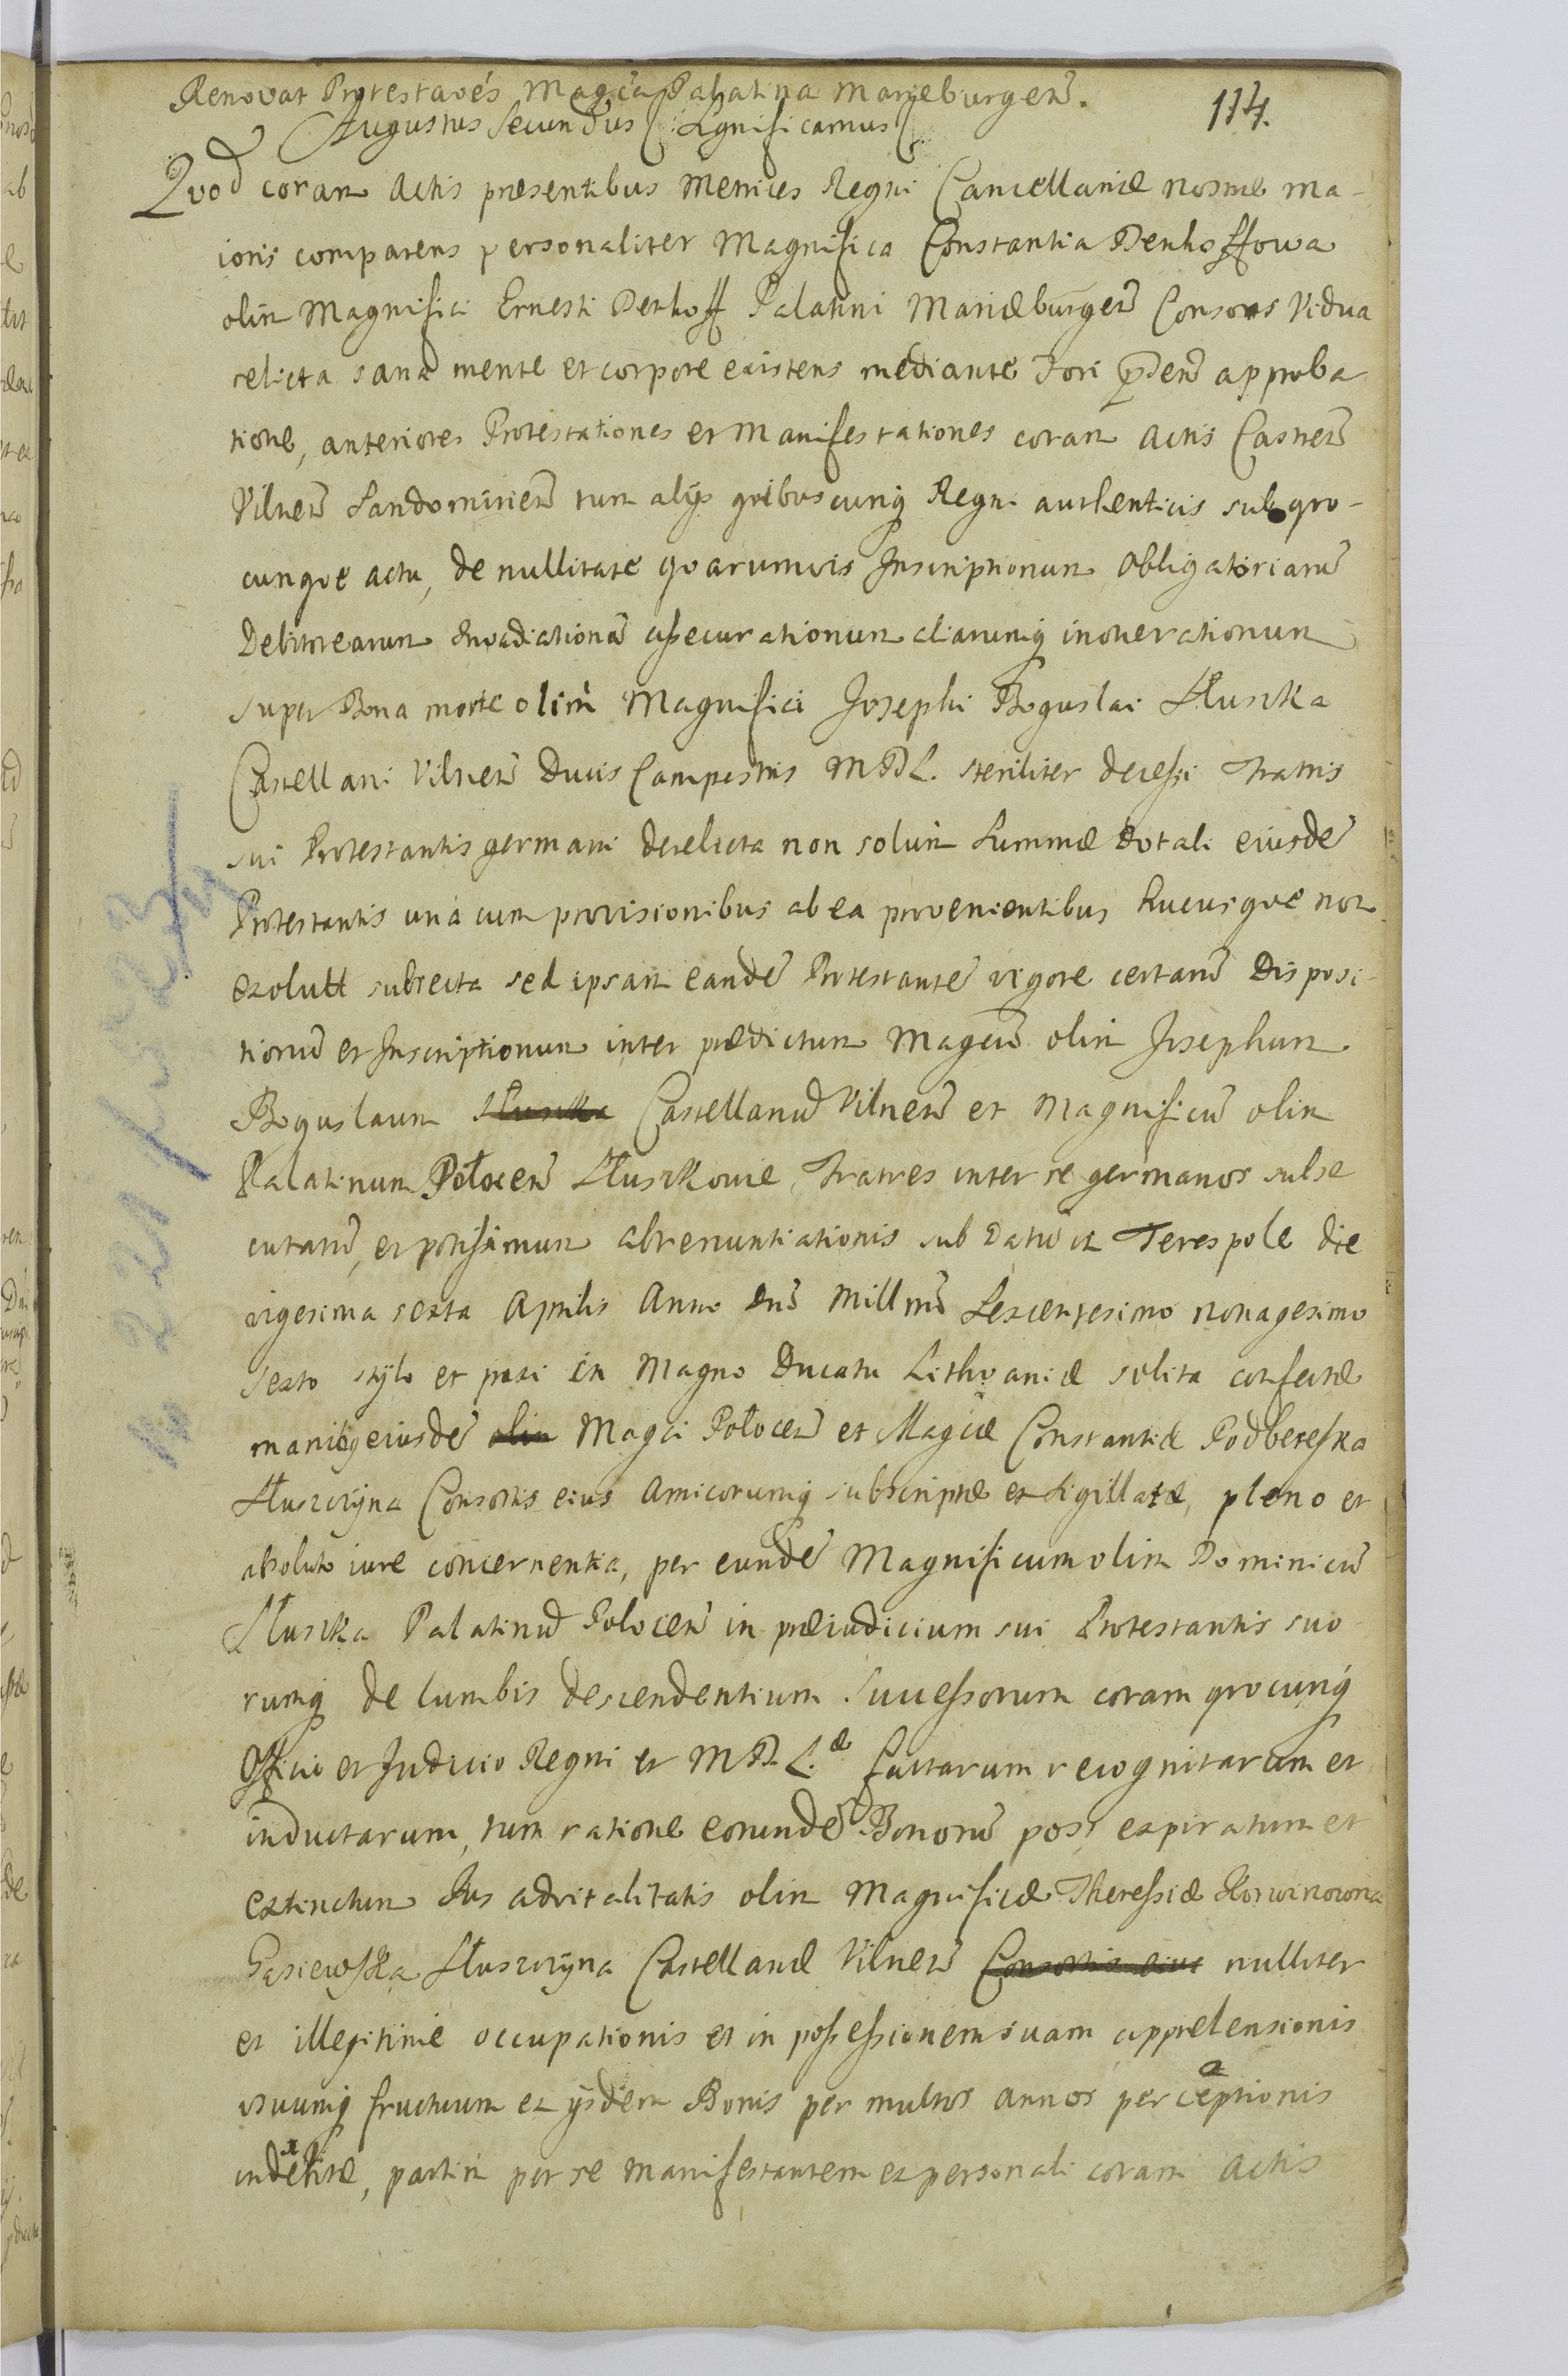 Renovat Protestaoēs Magca Palatina Marieburgen̄.
114.
Augustus Secundus (: Significamus
Quod coram Actis præsentibus Metrices Regni Cancellariæ nostræ ma-
ioris comparens personaliter Magnifica Constantia Denhoffowa
olim Magnifici Ernesti Denhoff Palatini Mariæburgen̄ Consors Vidua
relicta sana mente et corpore existens mediante Fori p̄den̄ approba
tione, anteriores Protestationes et Manifestationes coram Actis Castren̄
Vilnen̄ Sandomirien̄ tum alijs quibuscunq Regni authenticis sub quo-
cunque actu, de nullitate quarumvis Inscriptionum Obligatoriarū
Debitorearum Invadiationū assecurationum aliarumq inonerationum
super Bona morte olim Magnifici Josephi Boguslai Słuszka
Castellani Vilnen̄ Ducis Campestris M D L. steriliter decessi Fratris
sui Protestantis germani derelicta non solum Summæ dotali eiusdē
Protestantis una cum provisionibus ab ea provenientibus hucusque non
exolutæ subiecta sed ipsam eandē Protestantē vigore certarū Disposi-
tionū et Inscriptionum inter prædictum Magcū olim Josephum
Boguslaum Słuszka Castellanū Vilnen̄ et Magnificū olim
Palatinum Połocen̄ Słuszkowie, Fratres inter se germanos subse
cutarū, et potissimum abrenuntiationis sub Datū in Terespole die
vigesima sexta Aprilis Anno Dnī Millmō Sexcentesimo nonagesimo
Sexto stylo et praxi in Magno Ducatu Lithvaniæ solita confectæ
manibq eiusdē olim Magci Połocen̄ et Magcæ Constantiæ Podbereska
Słuszczyna Consortis eius Amicorumq subscriptæ et Sigillatæ, pleno et
absoluto iure concernentia, per eundē Magnificum olim Dominicū
Słuszka Palatinū Polocen̄ in præiudicium sui Protestantis suo
rumq de lumbis descendentium Successorum coram quocunq
Officio et Judicio Regni et M D. L.æ factarum recognitarum et
inductarum, tum ratione eorundē Bonorū post expiratum et
extinctum Jus advitalitatis olim Magnificæ Theressiæ Korwinowna
Gąsiewska Słuszczyna Castellanæ Vilnen̄ Consortis eius nulliter
et illegitime occupationis et in possessionem suam apprehensionis
usuumq fructuum ex ijsdem Bonis per multos annos perceptionis
indebitæ, partim per se manifestantem ex personali coram Actis